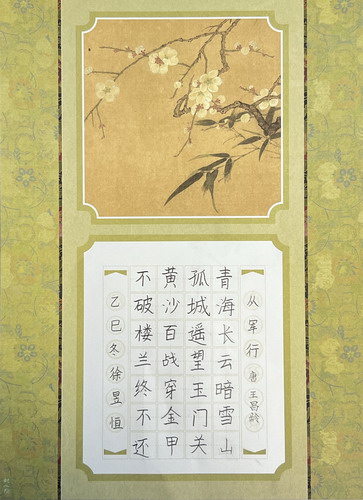 从军行 唐 王昌龄
青海长云暗雪山
孤城遥望玉门关
黄沙百战穿金甲
不破楼兰终不还
乙巳冬徐昱恒